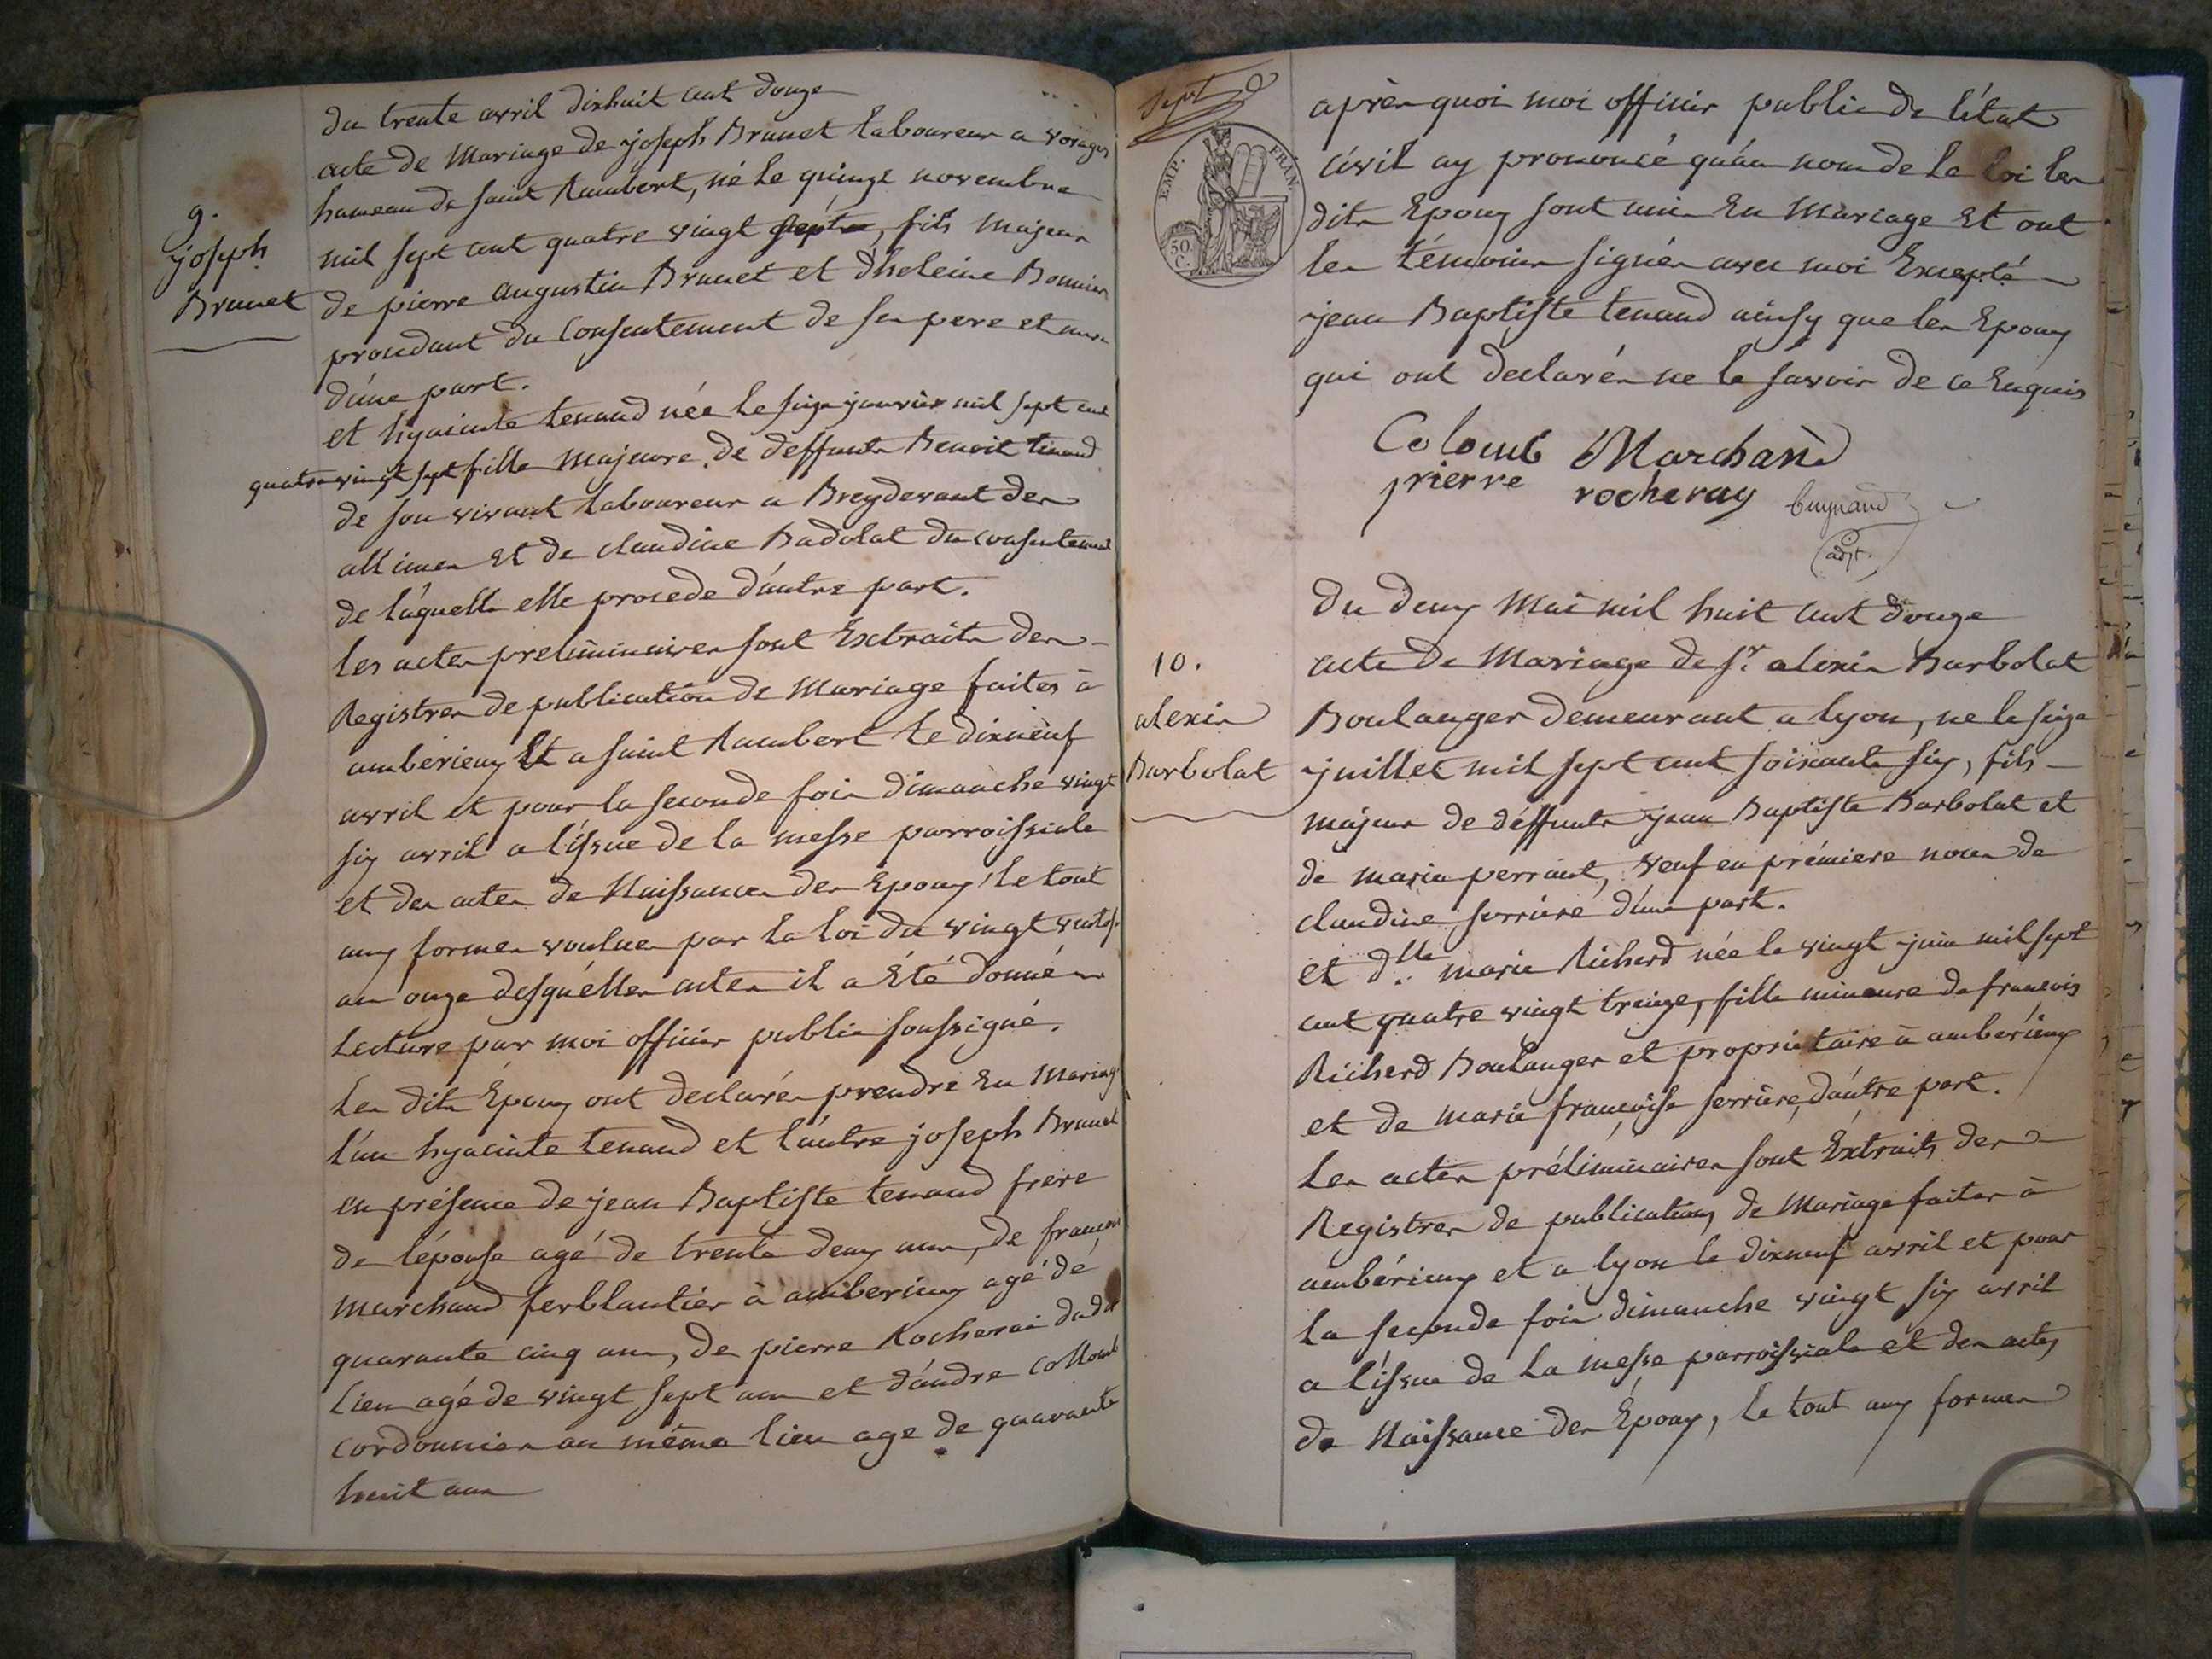 du trente avril dixhuit cent douze
acte de Mariage de joseph Brunet laboureur a vorages
hameau de saint Rambert, né le quinze novembre
mil sept cent quatre vingt sept, fils majeur
de pierre augustin Brunet et d'heleine Bonnier
procedant du Consentement de ses pere et mere
d'une part.
9.
joseph
Brunet
et hyacinte tenand née le seize janvier mil sept cent
quatre vingt sept fille majeure de deffunts Benoit tenand
de son vivant laboureur a Breydevant des
allimes et de claudine Badolat du consentement
de laquelle elle procede d'autre part.
les actes preliminaires sont Extraits des
Registres de publication de Mariage faites à
amberieux Et a saint Rambert le dixneuf
avril et pour la seconde fois dimanche vingt
six avril a l'issue de la messe parroissiale
et des actes de Naissances des Epoux, le tout
aux formes voulues par la loi du vingt ventose
an onze desquelles actes il a Été donné
Lecture par moi officier public soussigné.
Les dits Époux ont declarés prendre En Mariage
l'un hyacinte tenand et l'autre joseph Brunet
en présence de jean Baptiste tenand frere
de l'épouse agé de trente deux ans, de francois
marchand ferblantier à amberieux agé de
quarante cinq ans, de pierre Rocherai dudit
Lieu agé de vingt sept ans et d'andre collomb
cordonnier au même lieu age de quarante
huit ans
Sept
EMP. FRAN.
50 C.
après quoi moi officier public de l'état
civil ay prononcé qu'au nom de la loi les
dits Epoux sont unis En Mariage Et ont
les témoins signés avec moi Excepté
jean Baptiste tenand ainsy que les Epoux
qui ont declarés ne le savoir de ce Enquis
Colomb Marchand
pierre rocheray
adjt.
Du deux Mai mil huit cent douze
acte de Mariage de Sr. alexis Barbolat
Boulanger demeurant a lyon, ne le seize
juillet mil sept cent soixante six, fils
majeur de déffunts jean Baptiste Barbolat et
de marie perraut, veuf en prémiere noces de
claudine serriere d'une part.
10.
alexis
Barbolat
et dlle. marie Richerd née le vingt juin mil sept
cent quatre vingt treize, fille mineure de francois
Richerd Boulanger et proprietaire à ambérieux
et de marie francoise serriere, d'autre part.
Les actes préliminaires sont Extraits des
Registres de publications de Mariage faites à
ambérieux et a lyon le dixneuf avril et pour
la seconde fois dimanche vingt six avril
a l'issue de la messe parroissiale et des actes
de Naissance des Époux, le tout aux formes